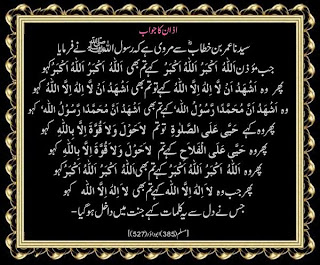 اذان کا جواب
سیدنا عمر بن خطابؓ سے مروی ہے کہ رسول اللہ ﷺ نے فرمایا
جب مؤذن اَللّٰهُ اَكْبَرُ اَللّٰهُ اَكْبَرُ کہے تم بھی اَللّٰهُ اَكْبَرُ اَللّٰهُ اَكْبَرُ کہو
پھر وہ اَشْهَدُ اَنْ لَّا اِلٰهَ اِلَّا اللّٰهُ کہے تو تم بھی اَشْهَدُ اَنْ لَّا اِلٰهَ اِلَّا اللّٰهُ کہو
وہ اَشْهَدُ اَنَّ مُحَمَّدًا رَّسُوْلُ اللّٰه کہے تم بھی اَشْهَدُ اَنَّ مُحَمَّدًا رَّسُوْلُ اللّٰه کہو
پھر وہ کہے حَيَّ عَلَى الصَّلٰوةِ تو تم لَاحَوْلَ وَلَا قُوَّةَ اِلَّا بِاللّٰهِ کہو
پھر وہ حَيَّ عَلَى الْفَلَاحِ کہے تم لَاحَوْلَ وَلَا قُوَّةَ اِلَّا بِاللّٰهِ کہو
پھر وہ اَللّٰهُ اَكْبَرُ اَللّٰهُ اَكْبَرُ کہے تم بھی اَللّٰهُ اَكْبَرُ اَللّٰهُ اَكْبَرُ کہو
پھر جب وہ لَا اِلٰهَ اِلَّا اللّٰهُ کہے تم بھی لَا اِلٰهَ اِلَّا اللّٰه کہو
جس نے دل سے یہ کلمات کہے جنت میں داخل ہو گیا۔
[مسلم (385) ابوداؤد (527)]